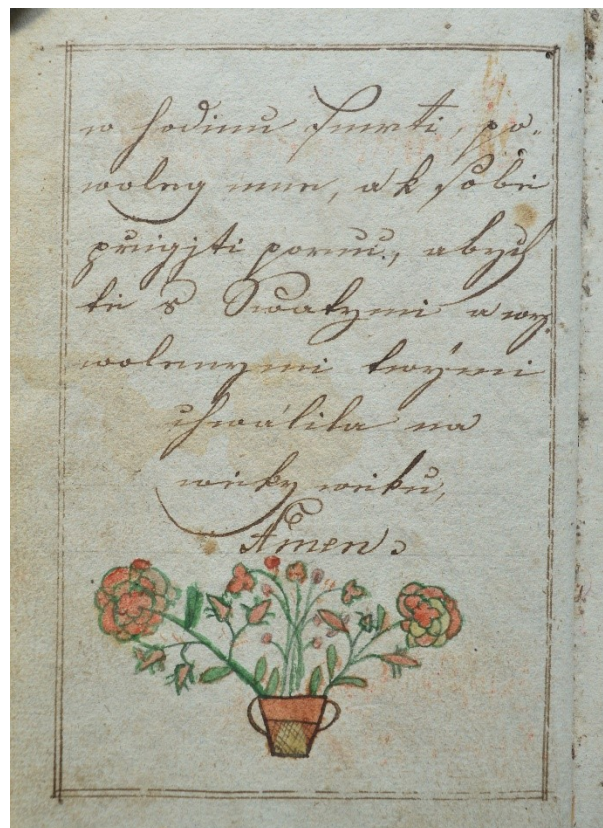 w hodinu smrti, po-
woleg mne, a k sobě
přigjti poruč, abych
tě s Swatymi a wy-
wolenymi twými
chwálila na
wěky wěků,
Amen.